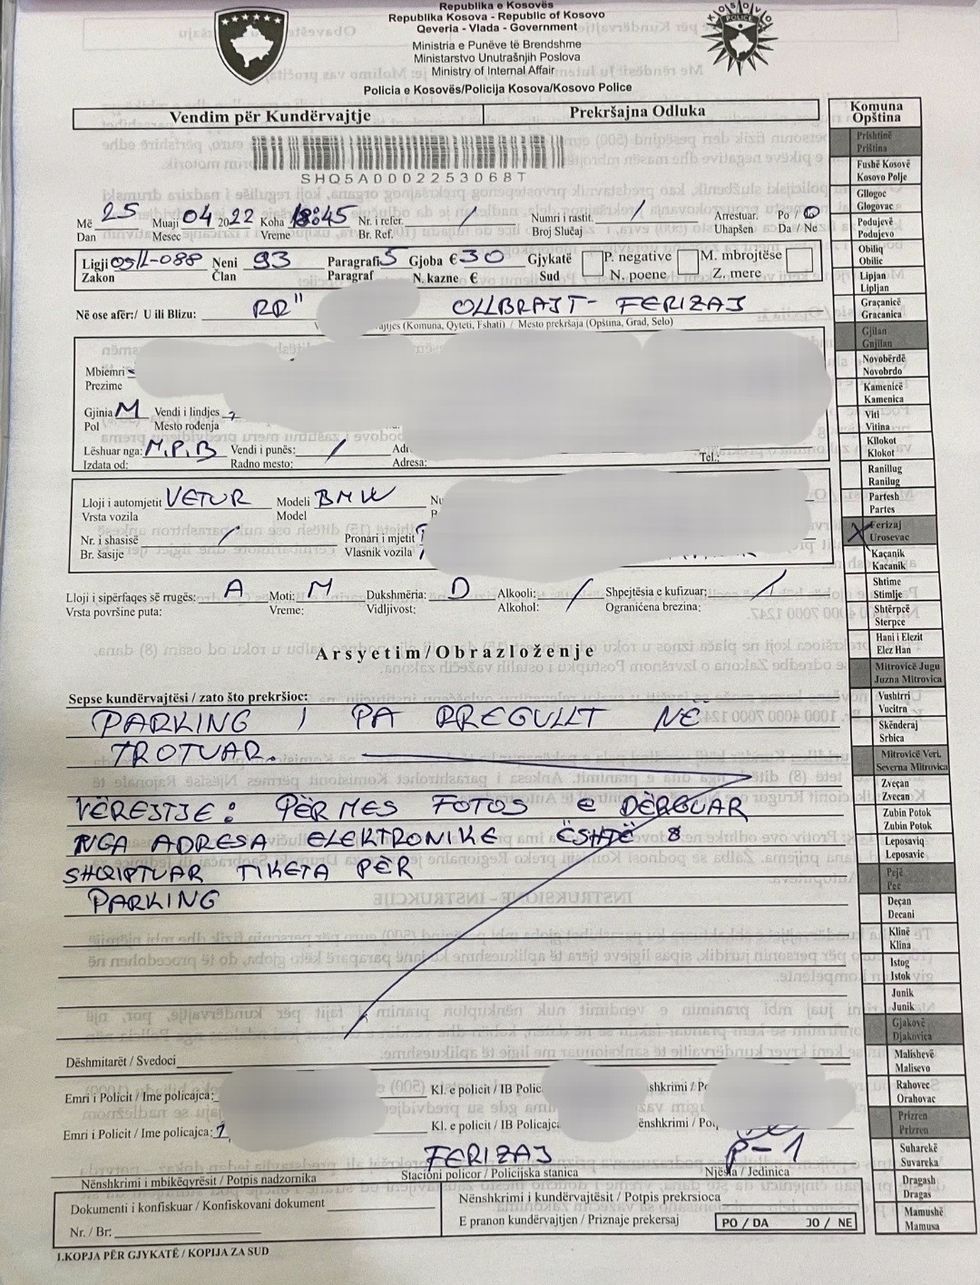 Republika e Kosovës
Republika Kosova - Republic of Kosovo
Qeveria - Vlada - Government
Ministria e Punëve të Brendshme
Ministarstvo Unutrašnjih Poslova
Ministry of Internal Affair
Policia e Kosovës/Policija Kosova/Kosovo Police
KOSOVO
POLICE
Vendim për Kundërvajtje Prekršajna Odluka
SHQ5A0002253068T
Më 25 Muaji 04 2022 Koha 18:45 Nr. i refer. / Numri i rastit. / Arrestuar. Po / Jo
Dan Mesec Vreme Br. Ref. Broj Slučaj Uhapšen Da / Ne
Ligji 09/L-088 Neni 93 Paragrafi 5 Gjoba € 30 Gjykatë P. negative M. mbrojtëse
Zakon Član Paragraf N. kazne € Sud N. poene Z. mere
Në ose afër:/ U ili Blizu: RR" OLLBRAJT - FERIZAJ
ajtjes (Komuna, Qyteti, Fshati) / Mesto prekršaja (Opština, Grad, Selo)
Mbiemri
Prezime
Gjinia M Vendi i lindjes
Pol Mesto rođenja
Lëshuar nga: M.P.B Vendi i punës: /
Izdata od: Radno mesto: Adresa: Tel.:
Lloji i automjetit VETUR Modeli BMW
Vrsta vozila Model
Nr. i shasisë / Pronari i mjetit
Br. šasije Vlasnik vozila
Lloji i sipërfaqes së rrugës: A Moti: M Dukshmëria: D Alkooli: / Shpejtësia e kufizuar: /
Vrsta površine puta: Vreme: Vidljivost: Alkohol: Ograničena brezina:
Arsyetim/Obrazloženje
Sepse kundërvajtësi / zato što prekršioc:
PARKING I PA RREGULLT NË
TROTUAR.
VËREJTJE: PËRMES FOTOS E DËRGUAR
NGA ADRESA ELEKTRONIKE ËSHTË
SHQIPTUAR TIKETA PËR
PARKING
Dëshmitarët / Svedoci
Emri i Policit / Ime policajca: Kl. e policit / IB Polic
Emri i Policit / Ime policajca: Kl. e policit / IB Policajca
FERIZAJ P-1
Nënshkrimi i mbikëqyrësit / Potpis nadzornika Stacioni policor / Policijska stanica Njësia / Jedinica
Dokumenti i konfiskuar / Konfiskovani dokument Nënshkrimi i kundërvajtësit / Potpis prekrsioca
Nr. / Br: E pranon kundërvajtjen / Priznaje prekersaj PO / DA JO / NE
1.KOPJA PËR GJYKATË / KOPIJA ZA SUD
Komuna
Opština
Prishtinë
Priština
Fushë Kosovë
Kosovo Polje
Gllogoc
Glogovac
Podujevë
Podujevo
Obiliq
Obilic
Lipjan
Lipljan
Graçanicë
Gracanica
Gjilan
Gnjilan
Novobërdë
Novobrdo
Kamenicë
Kamenica
Viti
Vitina
Kllokot
Klokot
Ranillug
Ranilug
Partesh
Partes
X Ferizaj
Urosevac
Kaçanik
Kacanik
Shtime
Stimlje
Shtërpcë
Sterpce
Hani i Elezit
Elez Han
Mitrovicë Jugu
Juzna Mitrovica
Vushtrri
Vucitrn
Skënderaj
Srbica
Mitrovicë Veri.
Severna Mitrovica
Zveçan
Zvecan
Zubin Potok
Zubin Potok
Leposaviq
Leposavic
Pejë
Pec
Deçan
Decani
Klinë
Klina
Istog
Istok
Junik
Junik
Gjakovë
Djakovica
Malishevë
Malisevo
Rahovec
Orahovac
Prizren
Prizren
Suharekë
Suvareka
Dragash
Dragas
Mamushë
Mamusa